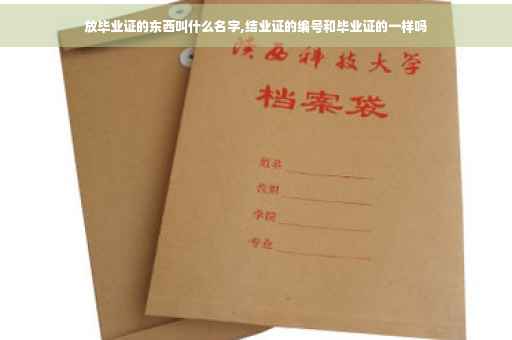 放毕业证的东西叫什么名字,结业证的编号和毕业证的一样吗
陕西科技大学
档案袋
姓名
学院
专业